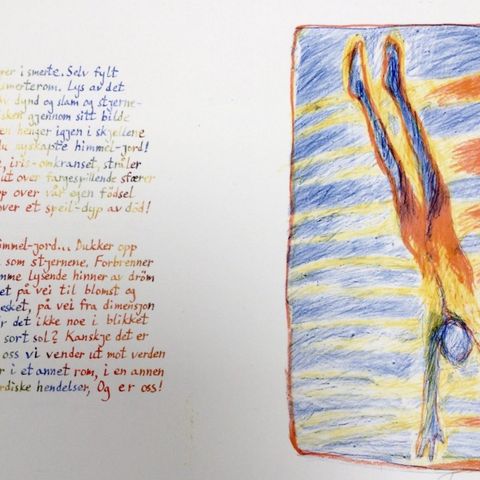 rer i smerte. Selv fylt
smerterom. Lys av det
av dynd og slam og stjerne-
isken gjennom sitt bilde
en henger igjen i skjellene
du nyskapte himmel-jord!
e, iris-omkranset, stråler
ut over fargespillende sfærer
pp over vår egen fødsel
over et speil-dyp av død!
immel-jord... Dukker opp
som stjernene. Forbrenner
mme lysende hinner av dröm
et på vei til blomst og
esket, på vei fra dimensjon
r det ikke noe i blikket
sort sol? Kanskje det er
oss vi vender ut mot verden
r i et annet rom, i en annen
rdiske hendelser, Og er oss!